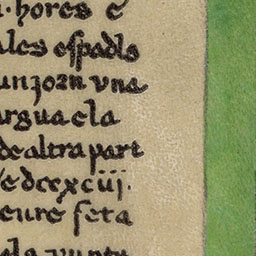 hores e
ales espadlo
un jorn vna
argua e la
de altra part
e dccxciij.
eure feta